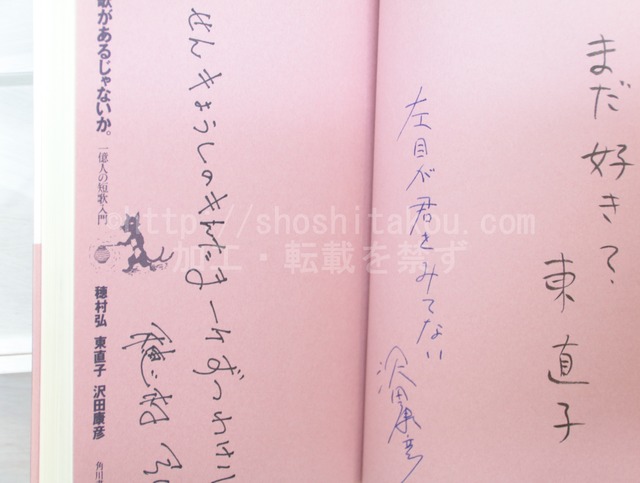 まだ好き？
東直子
左目が君をみてない
沢田康彦
せんきょうしのきんたま
穂村弘
歌があるじゃないか。
一億人の短歌入門
穂村弘 東直子 沢田康彦
角川
©https://shoshitakou.com
加工・転載を禁ず